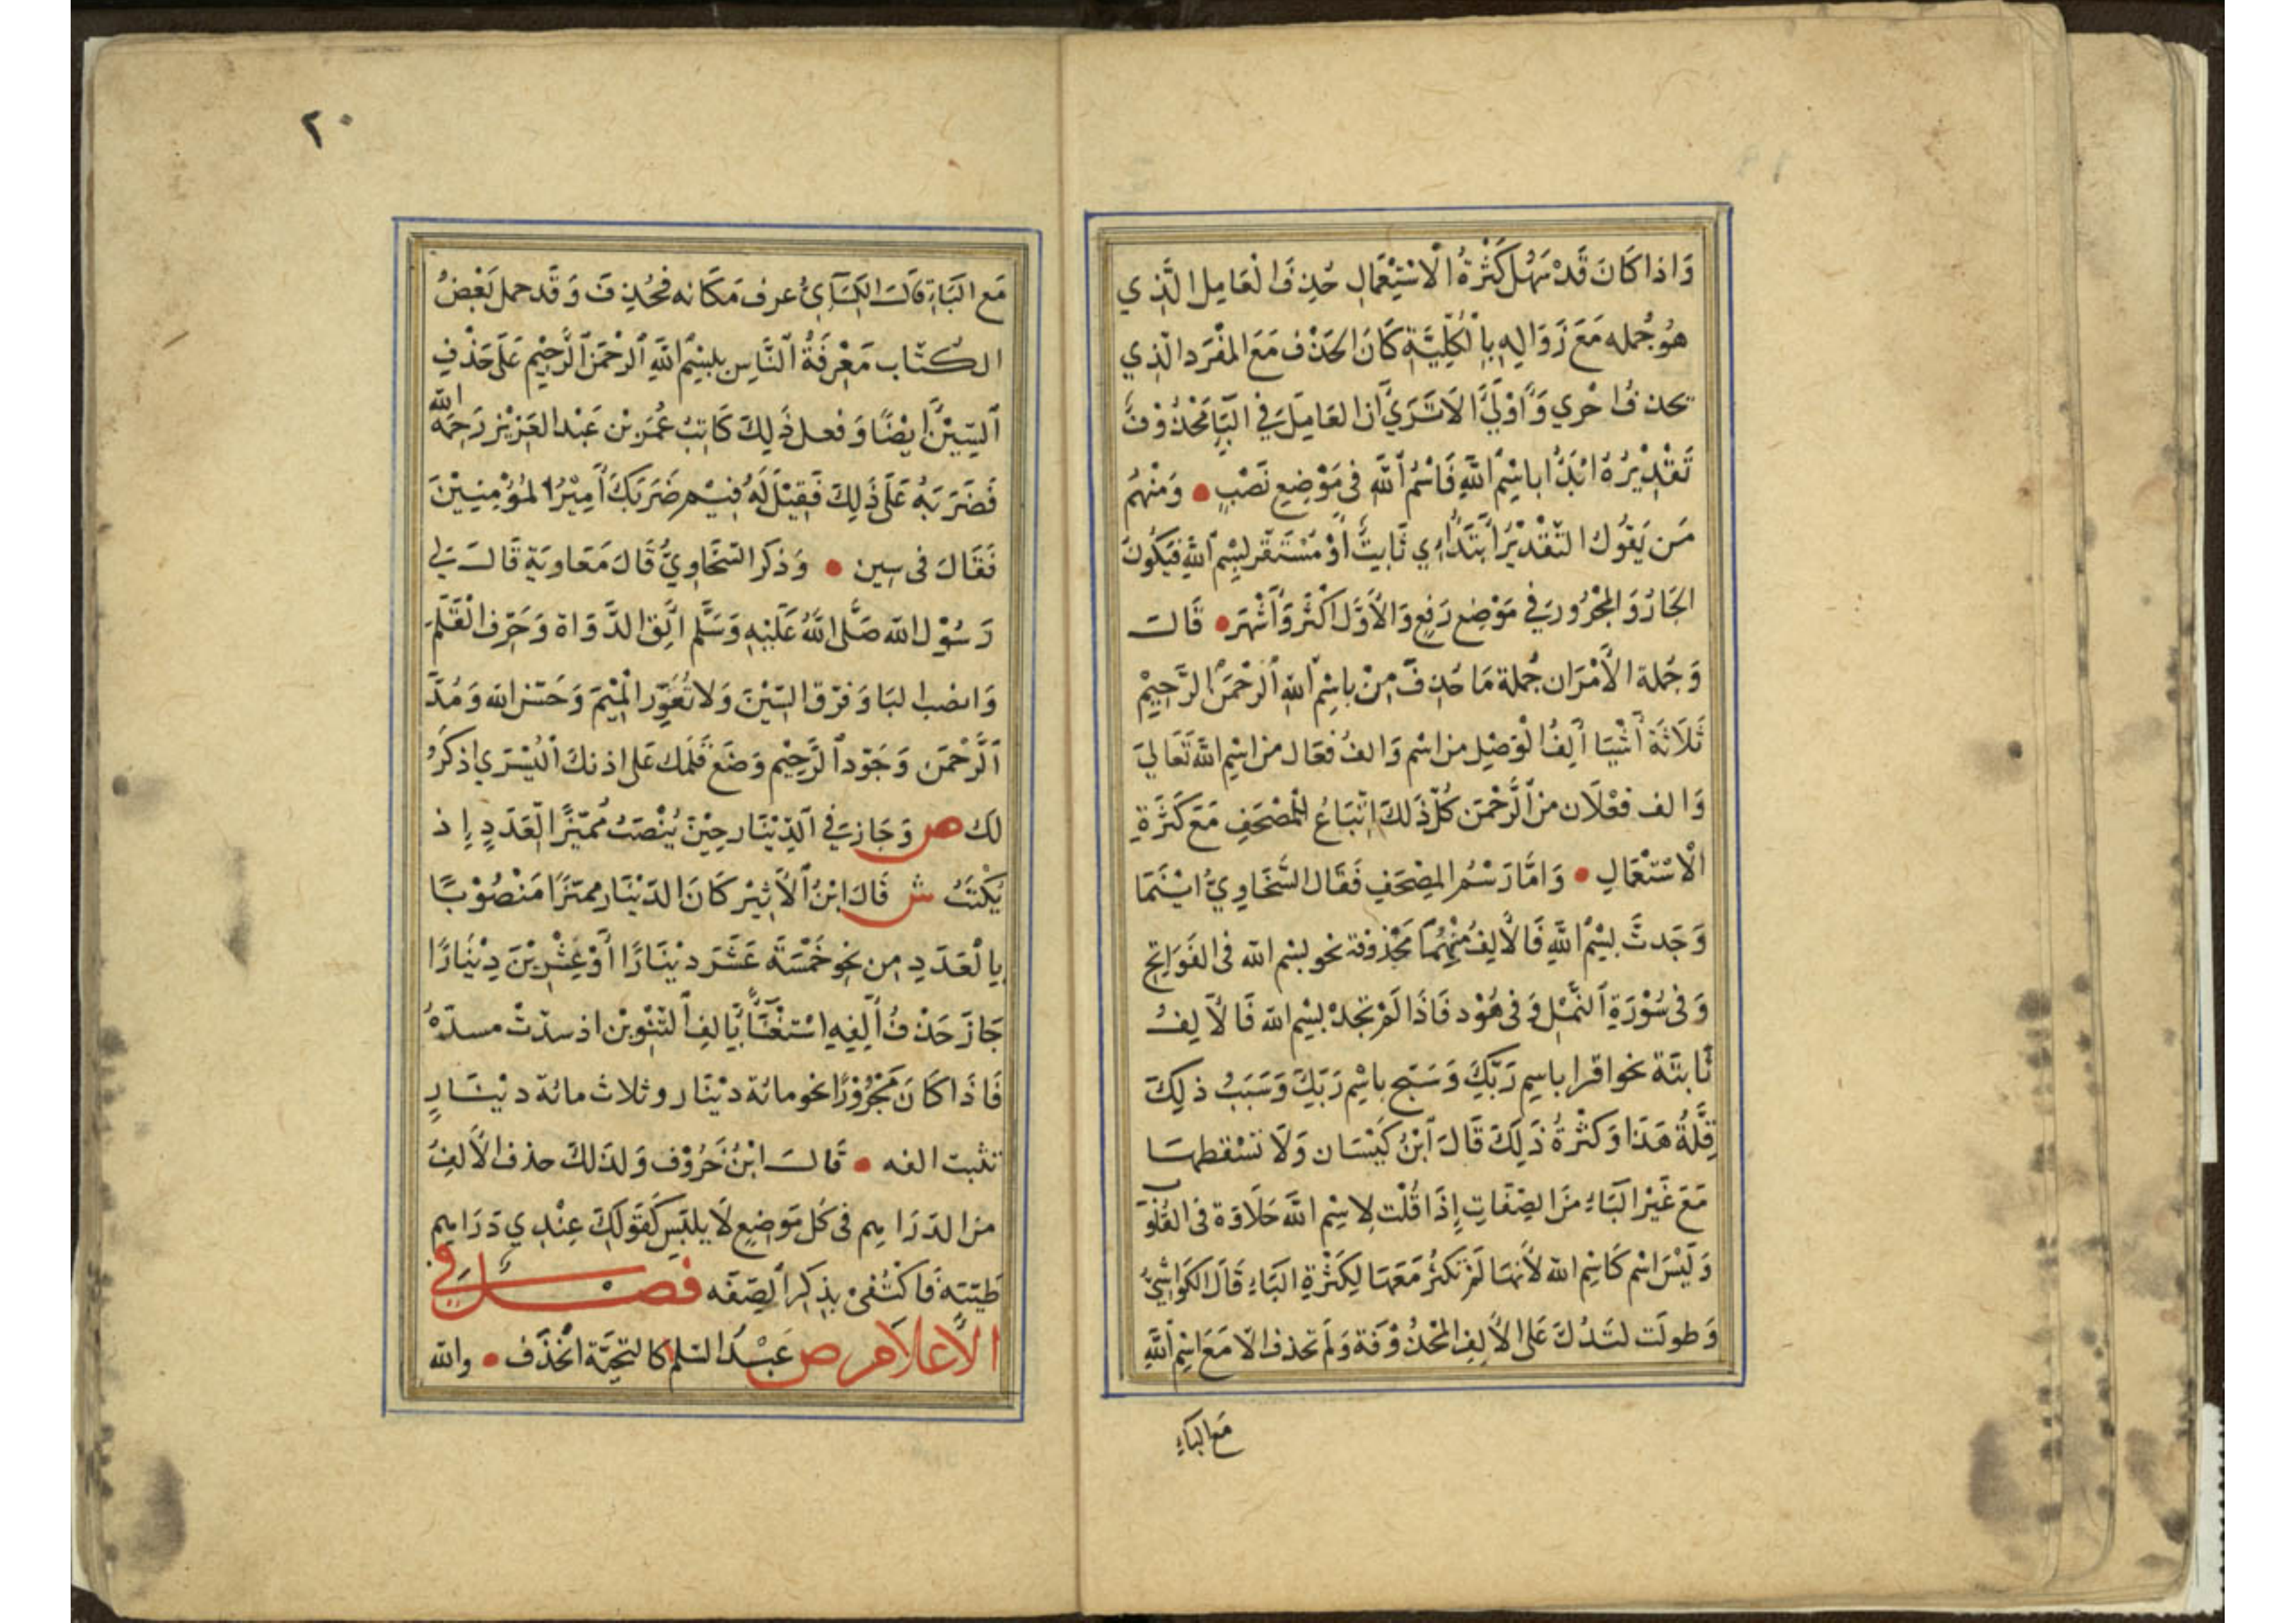 وَاذا كَانَ قَدْ سَهُلَ كَثْرَةُ الْاسْتِعْمَالِ حُذِفَ الْعَامِل الَّذِي
هُو جُمله مَعَ زَوَالِهِ بِالْكُلِّيَّةِ كَانَ الحَذْف مَعَ المفْرَد الّذِي
يحذف احْرِي وَأَوْلَى أَلَا تَرَيَ أن العَامِلَ فِي البَا مَحْذُوْفٌ
تَقْدِيْرُهُ ابْدَأُ باسْمِ اللَّهِ فَاسْمُ اللَّهِ فى مَوْضِعِ نَصْبٍ • وَمنْهُم
مَن يَقُوُل التّقْدِيْرُ أبْتَدَاءِي ثَابِتٌ أَوْ مُسْتَقَر بِسْمِ اللَّهِ فَيَكُونَ
الجَارُ وَ المَجْرُور فِي مَوْضِع رَفعٍ وَالأَوَّلَ أَكْثَر وَأَشْهَر • قَالَ
وَجُملة الأَمْرَان جُملة مَا حُذِفَ مِنْ باسِم اللهِ الرَّحْمَنِ الرَّحِيْم
ثَلَاثَة أَشْيَا أَلِفُ الْوَصْلِ من اسْم وَالفُ فعَال من اسْمِ اللَّه تَعَالَى
وَالف فعْلَان من الرَّحْمَن كُلّ ذَلكَ اتْبَاعُ للْمُصْحَفِ مَعَ كَثْرَةِ
الْاسْتعْمَالِ • وَامَّا رَسْمُ المصْحَفِ فَقَال السَّخَاوِيُّ ايْنَمَا
وَجَدتَ بِسْمِ اللَّهِ فَالأَلِفُ مِنْهُمَا مَحْذُوفة نحو بسْم الله فى الفَوَاتِحِ
وَفى سُوْرَةِ النَّمْلِ وَفى هُوْد فَاذَا لَمْ تَجِدْ بِسْمِ الله فَالأَلِفُ
ثَابتَة نحو اقرا باسِم رَبِّكَ وَسَبّح باسْمِ رَبِّكَ وَسَبَبُ ذلِكَ
قِلَّةُ هَذَا وَكَثْرَةُ ذَلِكَ قَالَ ابْنُ كَيْسَان وَلَا تسْقطهَا
مَعَ غَيْر البَاءِ مَن الصِفَاتِ إِذَا قُلْت لِاسْمِ اللَّه حَلَاوَة فى القُلُوْبِ
وَلَيْسَ اسْم كَاسِمِ الله لأَنهَا لَمْ تَكثُر مَعَهَا لِكَثْرَةِ البَاءِ قَالَ الكَوَاشِيُّ
وَطولَت لتَدُلّ عَلى الأَلِفِ المَحْذُوْفَة وَلَم تحذف الّا مَعَ اسْمِ اللَّهِ
مَع البَاءِ
٢٠
مَع البَاءِ قالَ الكِسَآئِيُّ عرف مَكَانه فحُذِفَ وَقَد حمل بَعْضُ
الكُتّاب مَعْرِفَةُ النَّاسِ بِبِسْمِ اللَّهِ الرَّحْمَنِ الرَّحِيْمِ عَلَى حَذْفِ
السِيْنِ أيْضًا وَفعل ذَلِكَ كَاتِبُ عُمَر بْن عَبْد العَزِيْزِ رَحِمَهُ الله
فَضَرَبَهُ عَلَى ذَلِكَ فَقِيْلَ لَهُ فِيْم ضَرَبَكَ أَمِيْرُ المُؤْمِنِيْنَ
فَقَالَ فى سِين • وَذكَرَ السَّخَاوِيُّ قَالَ مَعَاوِيَة قَالَ لِي
رَسُوْلُ الله صَلَّى اللَّهُ عَلَيْهِ وَسَلَّم أَلِقِ الدَّوَاة وَحَرّف الْقَلَمَ
وَانصْب البَا وَفرّق السِّيْنَ وَلا تُعَوِّرِ الْمِيْمَ وَحَسّن الله وَمُدَّ
الرَّحْمَنَ وَجَوّدِ الرَّحِيْم وَضَع قَلَمك عَلى اذنكَ اليُسْرَى اذكَرُ
لَك ص وَجَازَ فِي الدِّيْنَار حِيْنَ يُنْصَبُ مُميّزًا لِلْعَدَدِ إِذ
يُكْتَبُ ش قَالَ ابْنُ الأَثِيْر كَانَ الدّيْنَار ممَيّزًا مَنْصُوْبًا
بِالْعَدَدِ مِن نحو خَمْسَةَ عَشَرَ ديْنَارًا أَوْ عِشْرِيْنَ دِيْنَارًا
جَازَ حَذْفُ أَلِفِهِ اسْتغْنَاءً بِالفِ التَّنْوِيْن اذ سدّتْ مسدّهُ
فَاذَا كَانَ مَجْرُوْرًا نحو مائة ديْنَار وثلاث مائة ديْنَارٍ
تثبت الفه • قَالَ ابْنُ خَرُوْف وَلذَلكَ حذف الأَلِفُ
من الدرَاهِم فى كُل مَوضِعٍ لَا يلبَسِ كَقَوْلِكَ عِنْدِي دَرَاهِم
طَيّبَة فَاكْتُفىْ بِذِكرِ الصِفَة فَصْل فِي
الأَعْلَام ص عَبْدُ السّلم كَالتحِيَّة انحَذَف • والله